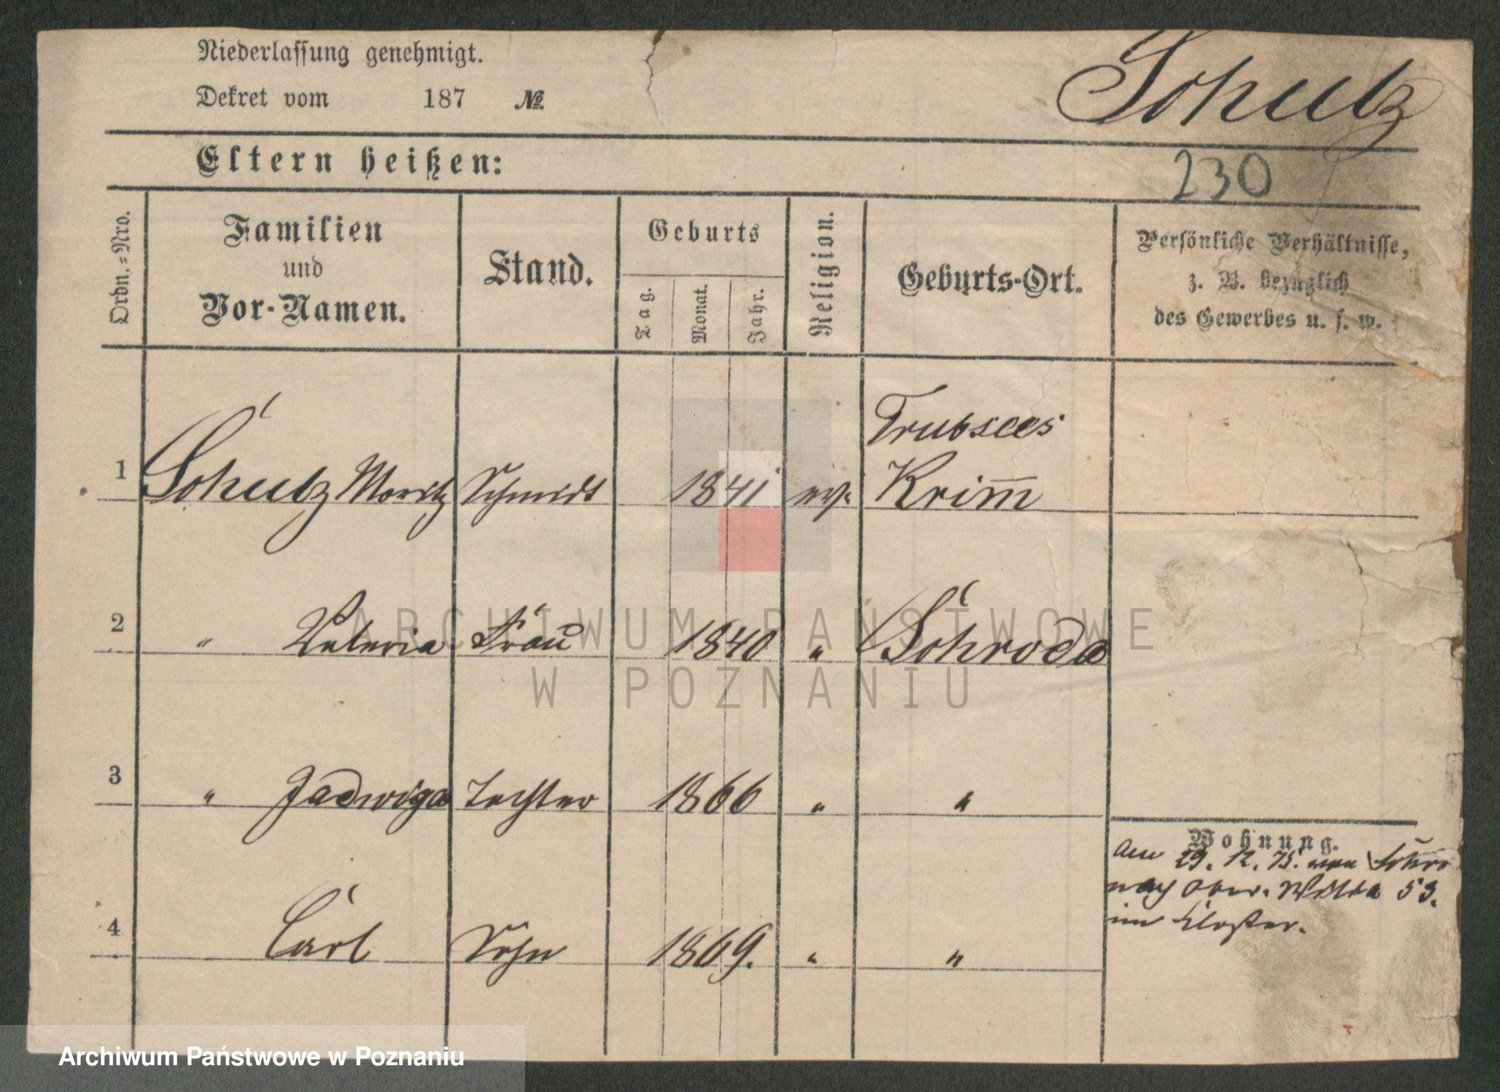 Niederlassung genehmigt.
Dekret vom 187 №.
Schulz
Eltern heißen:
230
Ordn.=Nro.
Familien
und
Vor-Namen.
Stand.
Geburts
Tag.
Monat.
Jahr.
Religion.
Geburts-Ort.
Persönliche Verhältnisse,
z. B. bezüglich
des Gewerbes u. s. w.
Trubsees
1 Schulz Moritz Schmidt 1841 ev. Krim̅
2 " Valeria Frau 1840 " Schroda
3 " Jadwiga Tochter 1866 " "
Wohnung.
am 29. 12. 75. von Schro
nach Ober-Wilda 53.
im Kloster.
4 Carl Sohn 1869. " "
ARCHIWUM PAŃSTWOWE
W POZNANIU
Archiwum Państwowe w Poznaniu